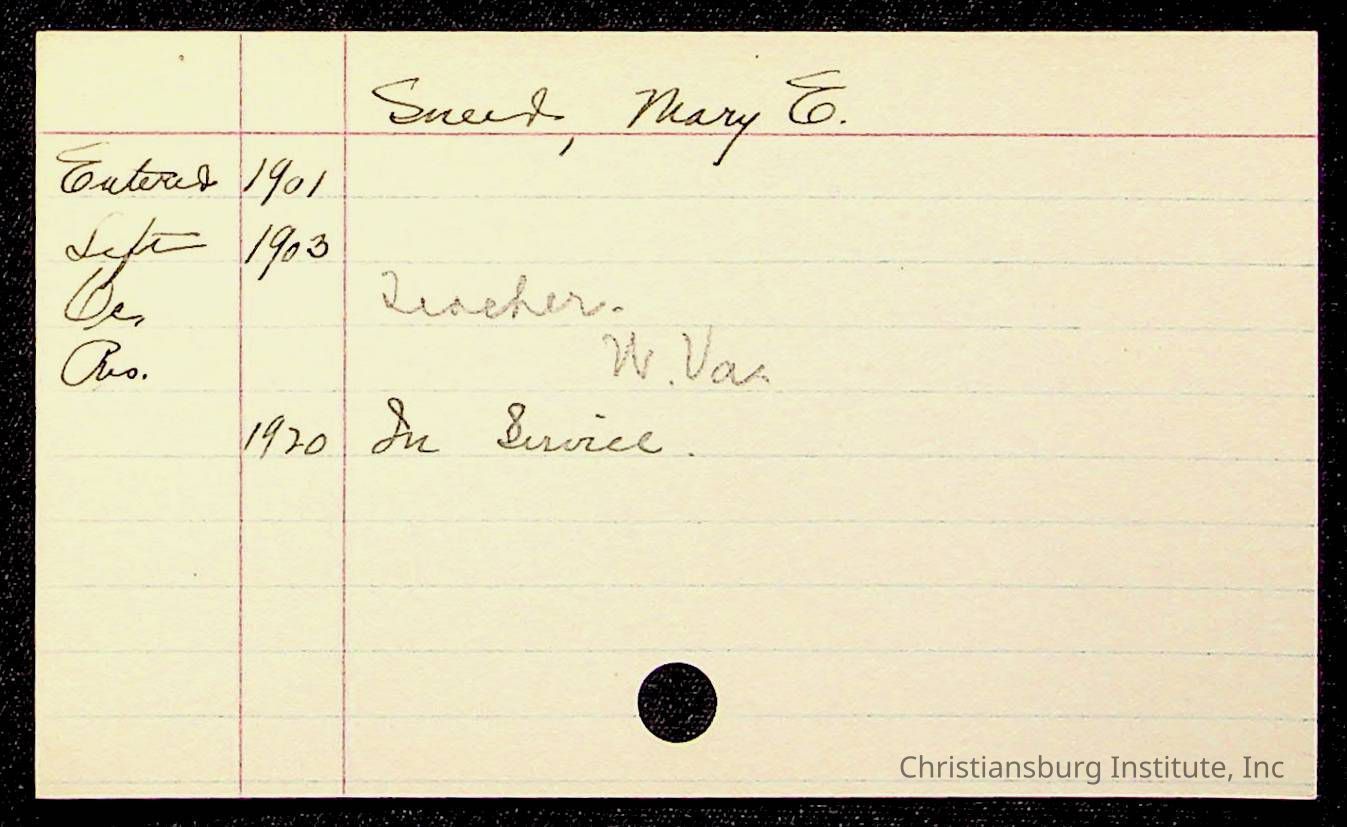 Sneed, Mary E.
Entered 1901
Left 1903
Oc. Teacher.
Res. W. Va.
1920 In Service.
Christiansburg Institute, Inc